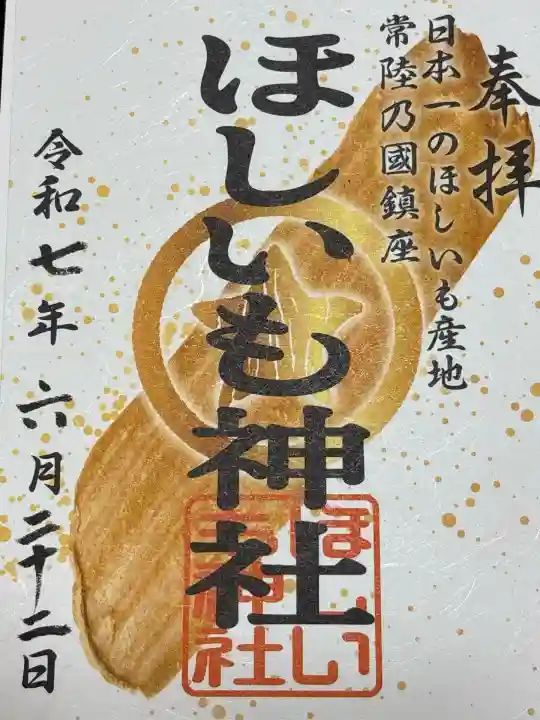 奉拝
日本一のほしいも産地
常陸乃國鎮座
ほしいも神社
令和七年 六月二十二日
ほしい
も神社